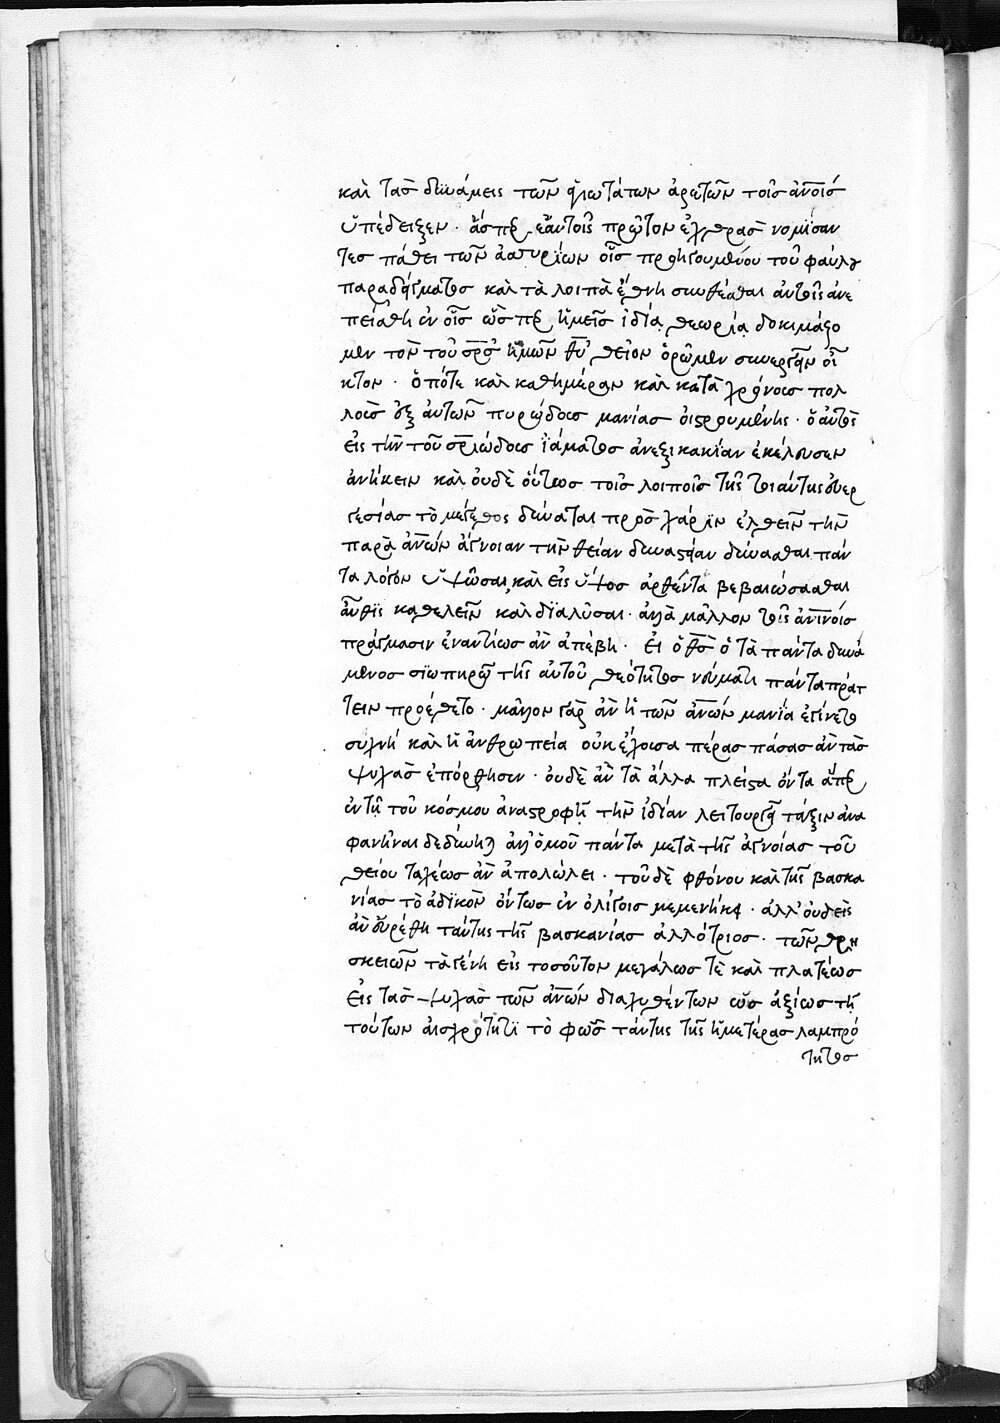 καὶ τὰς δυνάμεις τῶν ἁγιωτάτων ἀρετῶν τοῖς ἀνοις
ὑπέδειξεν · ἅσπερ ἑαυτοῖς πρῶτον ἐχθρὰς νομίσαν
τες πάθει τῶν ἀσσυρίων οἷς προηγουμένου τοῦ φαύλου
παραδείγματος καὶ τὰ λοιπὰ ἔθνη συνθέσθαι αὐτοῖς ἀνε
πείσθη ἐν οἷς ὥσπερ ἡμεῖς ἰδία θεωρία δοκιμάζο
μεν τὸν τοῦ σρσ ἡμῶν θυ θεῖον ὁρῶμεν συνεργεῖν οἶ
κτον · ὁπότε καὶ καθημέραν καὶ κατὰ χρόνους πολ
λοὺς ἐξ αὐτῶν πυρώδους μανίας οἰστρουμένης · ὁ αὐτὸς
εἰς τὴν τοῦ σριώδους ἰάματος ἀνεξικακίαν ἐκέλουσεν
ἀνήκειν καὶ οὐδὲ οὕτως τοῖς λοιποῖς τῆς τοιαύτης εὐερ
γεσίας τὸ μέγεθος δύναται πρὸς χάριν ἐλθεῖν τὴν
παρὰ ἀνων ἄγνοιαν τὴν θείαν δυναστείαν δύνασθαι πάν
τα λόγον ὑψῶσαι, καὶ εἰς ὕψος ἀρθέντα βεβαιώσασθαι
αὖθις καθελεῖν καὶ διαλῦσαι · ἀλλὰ μᾶλλον τοῖς ἀνινοις
πράγμασιν ἐναντίως ἂν ἀπέβη · εἰ ὁ θσ ὁ τὰ πάντα δυνά
μενος σιωπηρῶ τῆς αὐτοῦ θεότητος νεύματι πάντα πράτ
τειν προέθετο · μᾶλλον γὰρ ἂν ἡ τῶν ἀνων μανία ἐγίνετο
συχνή καὶ ἡ ἀνθρωπεία οὐκ ἔχουσα πέρας πάσας ἂν τὰς
ψυχὰς ἐπόρθησεν · οὐδὲ ἂν τὰ ἄλλα πλεῖστα ὄντα ἅπερ
ἐν τῇ τοῦ κόσμου ἀναστροφῇ τὴν ἰδίαν λειτουργεῖ τάξιν ἀνα
φανῆναι δεδύνηται ἀλλ' ὁμοῦ πάντα μετὰ τῆς ἀγνοίας τοῦ
θείου ταχέως ἂν ἀπολώλει · τοῦ δὲ φθόνου καὶ τῆς βασκα
νίας τὸ ἄδικον ὄντως ἐν ὀλίγοις μεμενήκει · ἀλλ' οὐδεὶς
ἂν εὑρέθη ταύτης τῆς βασκανίας ἀλλότριος · τῶν θρη
σκειῶν τὰ γένη εἰς τοσοῦτον μεγάλως τε καὶ πλατέως
εἰς τὰς ψυχὰς τῶν ἀνων διαχυθέντων ὡς ἀξίως τῇ
τούτων αἰσχρότητι τὸ φῶς ταύτης τῆς ἡμετέρας λαμπρό
τητος